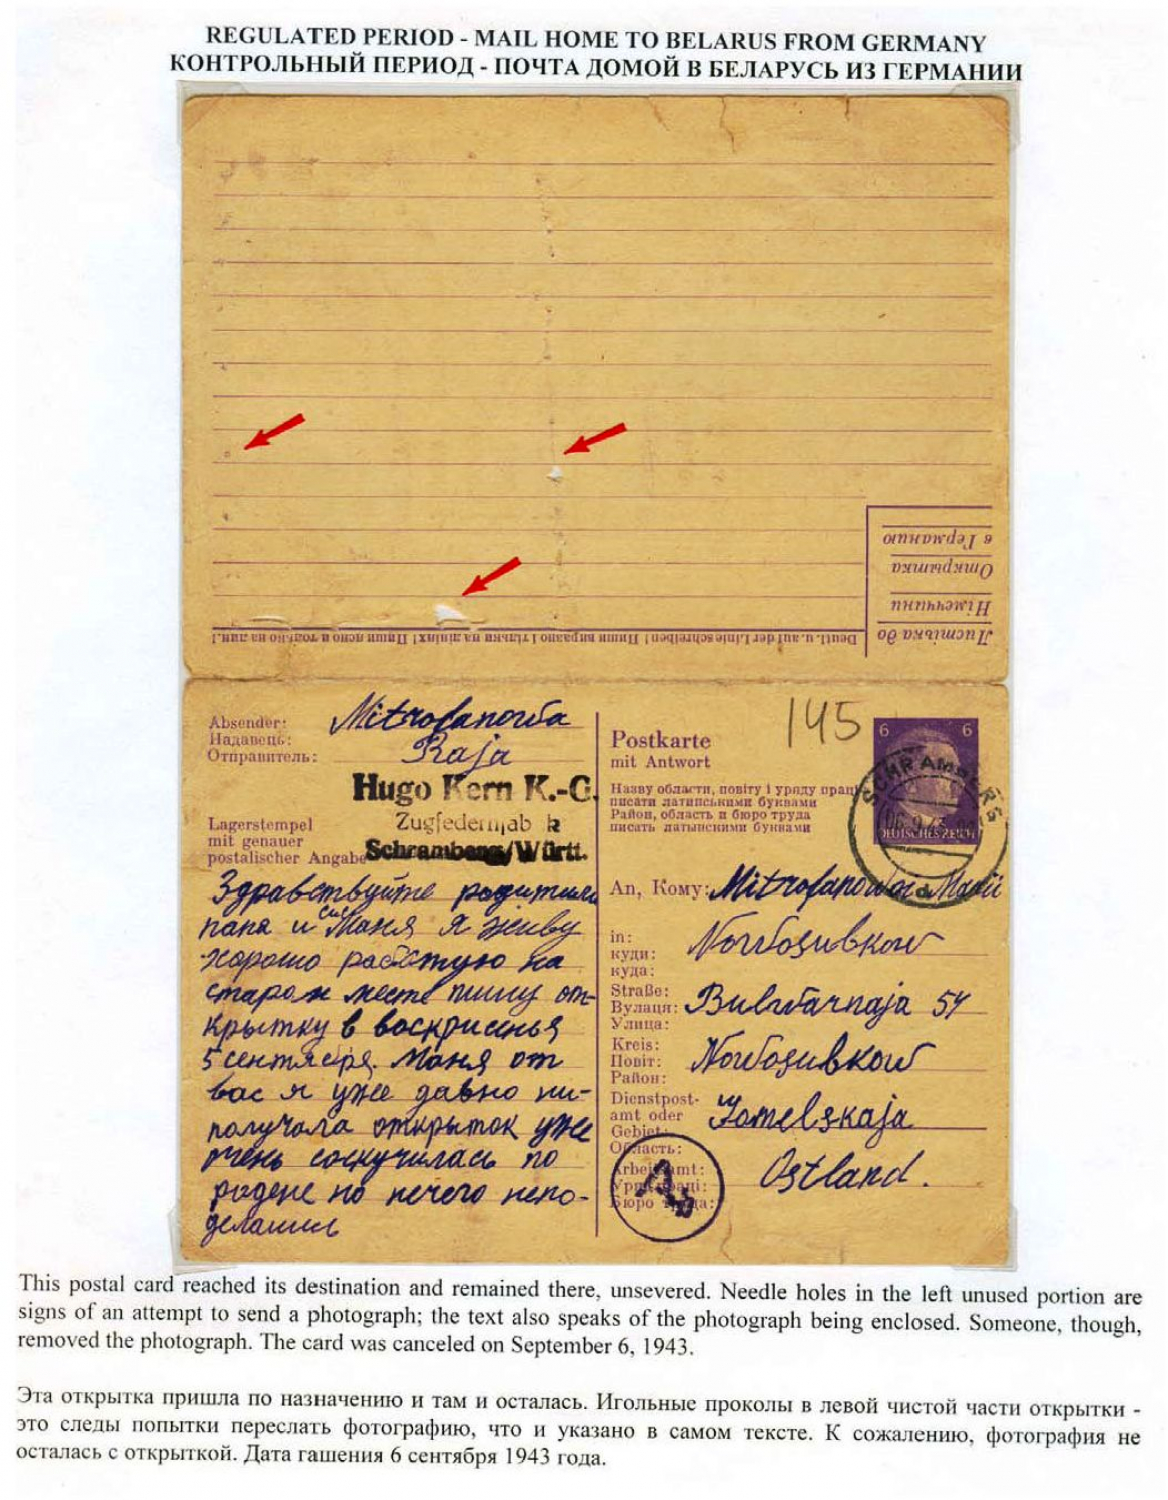 REGULATED PERIOD - MAIL HOME TO BELARUS FROM GERMANY
КОНТРОЛЬНЫЙ ПЕРИОД - ПОЧТА ДОМОЙ В БЕЛАРУСЬ ИЗ ГЕРМАНИИ
Листівка до
Німеччини
Открытка
в Германию
Deutl. u. auf der Linie schreiben! Пиши виразно і тільки на лініях! Пиши ясно и только на лин.!
Absender:
Надавець:
Отправитель:
Mitrofanowa
Raja
Hugo Kern K.-G.
Zugfedernfab k
Schramberg/Württ.
Lagerstempel
mit genauer
postalischer Angabe
Здравствуйте родители
папа и Маня я живу
хорошо работую на
старом месте пишу от-
крытку в воскрисенья
5 сентября. Маня от
вас я уже давно ни-
получала открыток уже
очень соскучилась по
родене но нечего непо-
делаишь
145
Postkarte
mit Antwort
Назву области, повіту і уряду праці
писати латинськими буквами
Район, область и бюро труда
писать латынскими буквами
6 6
DEUTSCHES REICH
SCHRAMBERG
An, Кому: Mitrofanowa Manii
in:
куди:
куда:
Nowosubkow
Straße:
Вулаця:
Улица:
Bulwarnaja 54
Kreis:
Повіт:
Район:
Nowosubkow
Dienstpost-
amt oder
Gebiet:
Область:
Gomelskaja
Arbeitsamt:
Уряд праці:
Бюро труда:
Ostland.
This postal card reached its destination and remained there, unsevered. Needle holes in the left unused portion are
signs of an attempt to send a photograph; the text also speaks of the photograph being enclosed. Someone, though,
removed the photograph. The card was canceled on September 6, 1943.
Эта открытка пришла по назначению и там и осталась. Игольные проколы в левой чистой части открытки -
это следы попытки переслать фотографию, что и указано в самом тексте. К сожалению, фотография не
осталась с открыткой. Дата гашения 6 сентября 1943 года.